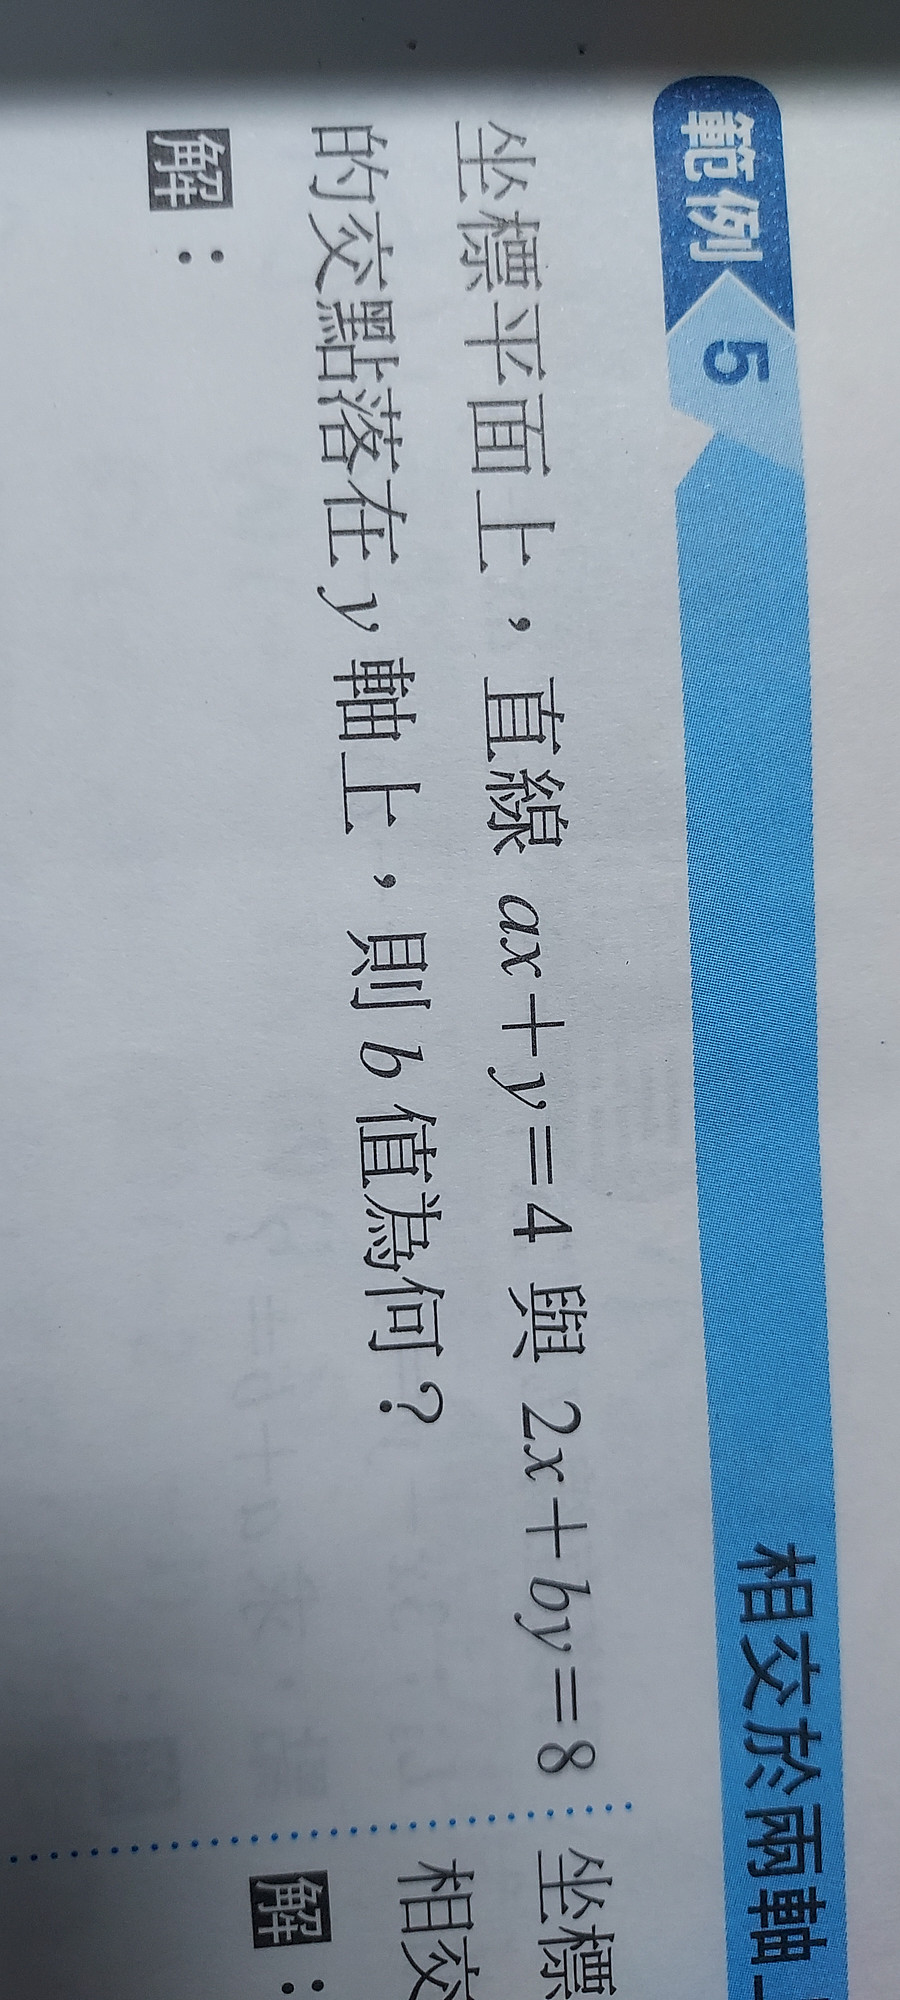 範例 5 相交於兩軸上
坐標平面上，直線 ax＋y＝4 與 2x＋by＝8
的交點落在 y 軸上，則 b 值為何？
解：
坐標
相交
解：